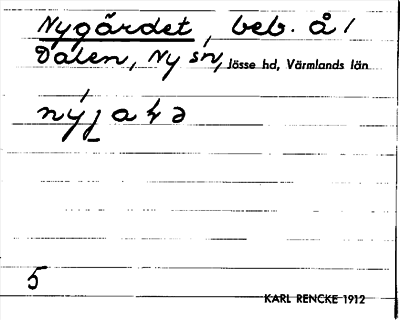 Nygärdet, beb. å /
Dalen, Ny sn, Jösse hd, Värmlands län
5
KARL RENCKE 1912